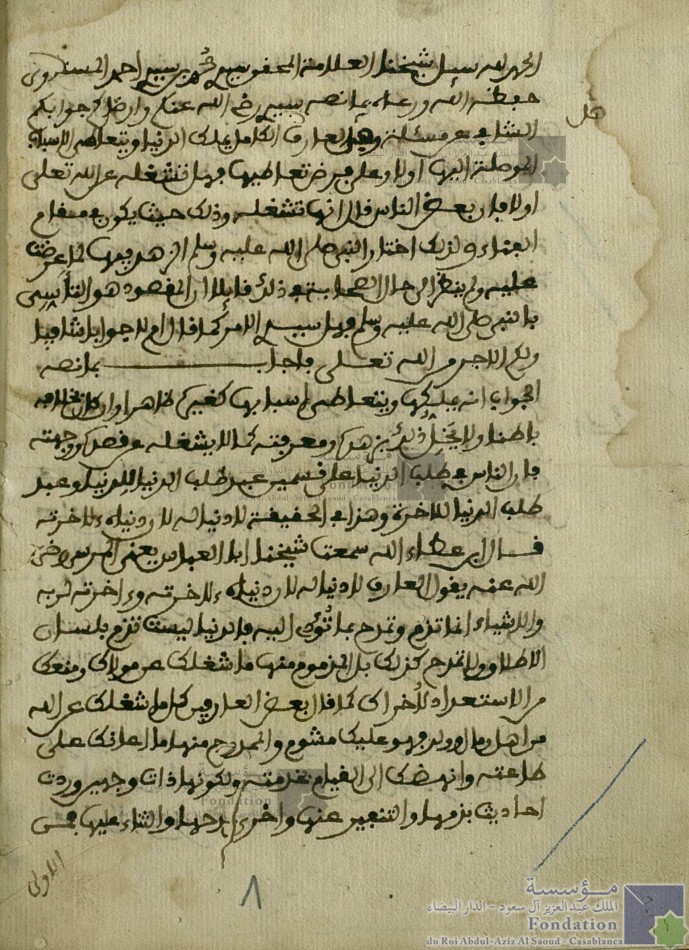 الحمد لله سيل شيخنا العلامة المحقق سيدي محمد بن سيدي احمد المسنوي
حفظه الله ورعاه بما نصه سيدي رضي الله عنكم وارضاكم جوابكم
هل
الشافي عن مسئلة وهي العارف الكامل يملك الدنيا ويتعاطى الاسباب
الموصلة اليها اولا وعلى فرض تعاطيها فهل تشغله عن الله تعلى
اولا فان بعض الناس قال انها تشغله وذلك حيث يكون في مقام
الفناء ولذلك اختار النبي صلى الله عليه وسلم الزهد فيها لما عرضت
عليه ولم ينظر الى حال الصحابة في ذلك قايلا ان المقصود هو التأسي
بالنبي صلى الله عليه وسلم فهل سيدي الامر كما قال ام لا جوابا شافيا
ولكم الاجر من الله تعلى فاجاب بما نصه
الجواب انه يملكها ويتعاطى اسبابها كغيره ظاهرا وان كان بخلافه
باطنا ولا يخل ذلك بزهده ومعرفته كما لا يشغله عن قصده ووجهته
فان الناس في طلب الدنيا على قسمين عبد طلب الدنيا للدنيا وعبد
طلب الدنيا للاخرة وهذا في الحقيقة لا دنيا له لان دنياه لاخرته
قال ابن عطاء الله سمعت شيخنا ابا العباس يعني المرسي رضي
الله عنه يقول العارف لا دنيا له لان دنياه لاخرته واخرته لربه
والاشياء انما تذم وتمدح بما تؤدي اليه فالدنيا ليست تذم بلسان
الاطلاق ولا تمدح كذلك بل المذموم منها ما شغلك عن مولاك ومنعك
من الاستعداد لأخراك كما قال بعض العارفين كل ما شغلك عن الله
من اهل ومال وولد فهو عليك مشوم والممدوح منها ما اعانك على
طاعته وانهضك الى القيام بخدمته ولكونها ذات وجهين وردت
احاديث بذمها والتنفير عنها واخرى بمدحها والثناء عليها فمن
الاولى
٨
مؤسسة
الملك عبد العزيز آل سعود - الدار البيضاء
Fondation
du Roi Abdul-Aziz Al Saoud - Casablanca